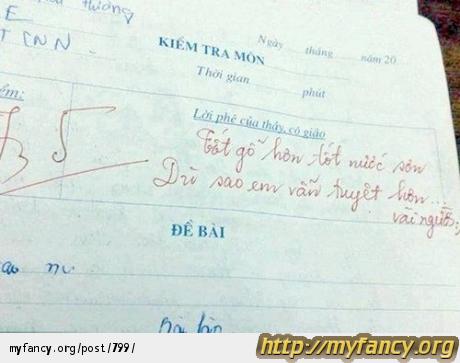 thương
E
T CNN.
Ngày tháng năm 20
KIỂM TRA MÔN
Thời gian phút
Lời phê của thầy, cô giáo
Tốt gỗ hơn tốt nước sơn
Dù sao em vẫn tuyệt hơn...
vài người:)
ĐỀ BÀI
Bài làm
myfancy.org/post/799/
http://myfancy.org